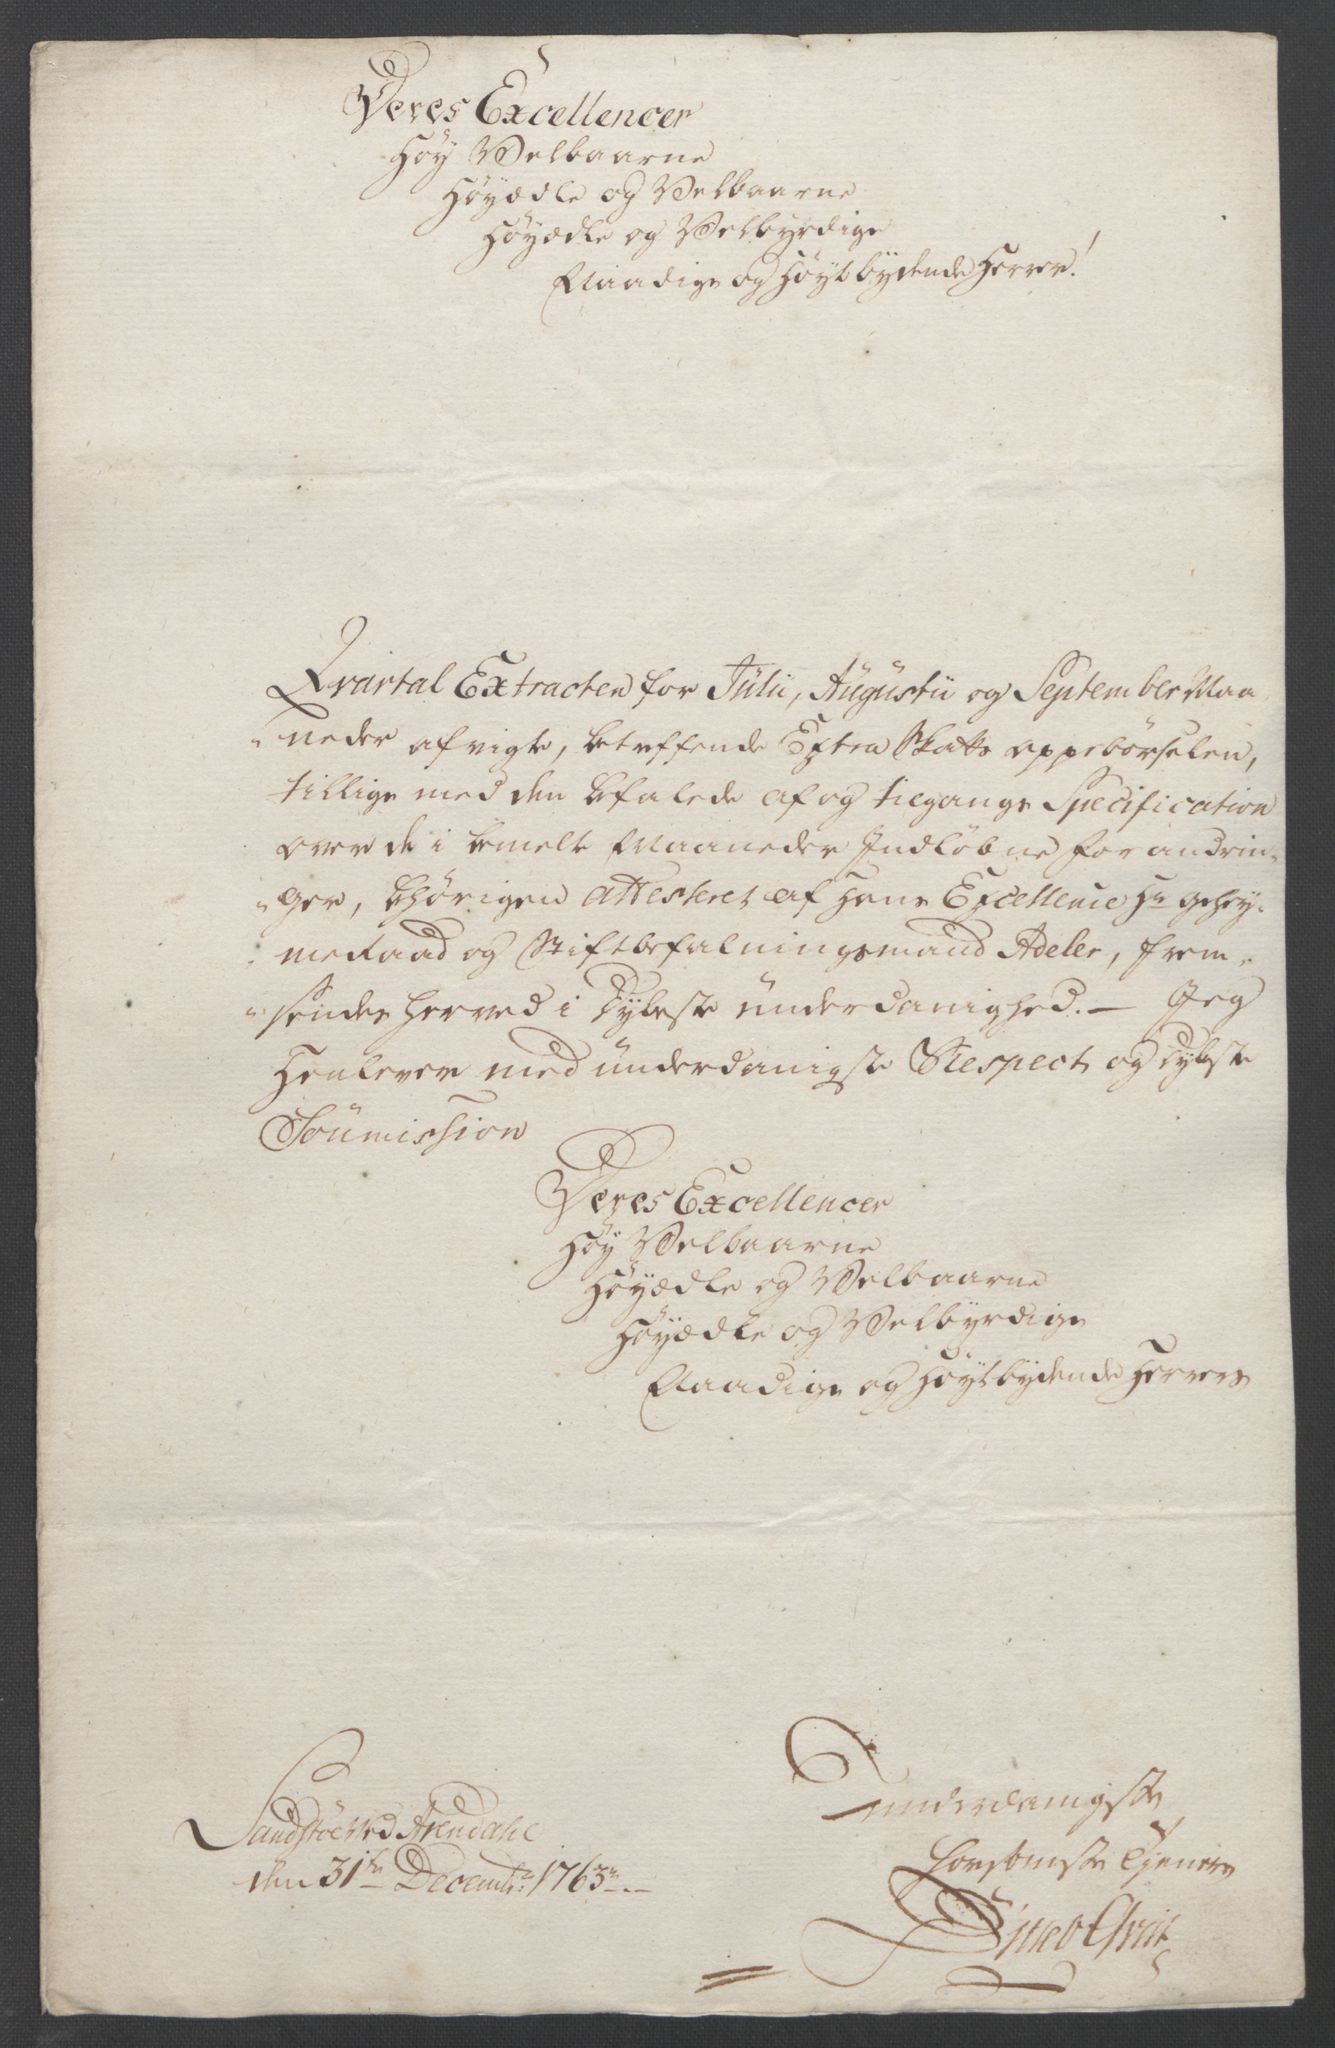 Deres Excellencer
Höy Velbaarne
Höyædle og Velbaarne
Höyædle og Velbyrdige
Naadige og Höytbydende Herrer!
Qvartal Extracten for Julii, Augustii og September Maa
neder afvigte, betreffende Extra Skatts oppebörselen,
tillige med den befalede af og tilgangs Specification
over de i bemelte Maaneder Indlöbne forandrin-
ger, behörigen attesteret af Hans Excellence Hr Gehey-
meRaad og Stiftbefalningsmand Adeler, frem-
sendes herved i dybeste underdanighed. — Jeg
Henlever med underdanigste Respect og dybste
Soumission
Deres Excellencer
Höy Velbaarne
Höyædle og Velbaarne
Höyædle og Velbyrdige
Naadige og Höytbydende Herrers
underdanigste
Sandstöe ved Arendahl
den 31te Decembr: 1763
Tjenere